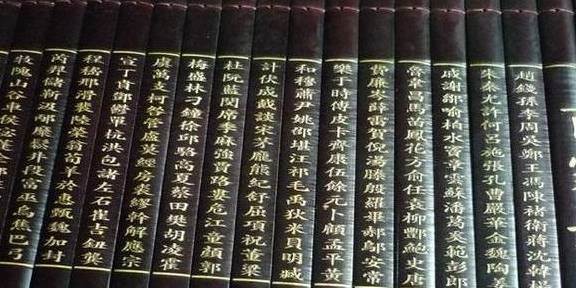 趙錢孫李周吳鄭王馮陳褚衛蔣沈韓楊
朱秦尤許何呂施張孔曹嚴華金魏陶姜
戚謝鄒喻柏水竇章雲蘇潘葛奚範彭郎
魯韋昌馬苗鳳花方俞任袁柳酆鮑史唐
費廉岑薛雷賀倪湯滕殷羅畢郝鄔安常
樂于時傅皮卡齊康伍餘元卜顧孟平黃
和穆蕭尹姚邵堪汪祁毛禹狄米貝明臧
計伏成戴談宋茅龐熊紀舒屈項祝董梁
杜阮藍閔席季麻強賈路婁危江童顏郭
梅盛林刁鐘徐邱駱高夏蔡田樊胡凌霍
虞萬支柯昝管盧莫經房裘繆幹解應宗
宣丁賁鄧鬱單杭洪包諸左石崔吉鈕龔
程嵇邢滑裴陸榮翁荀羊於惠甄魏加封
芮羿儲靳汲邴糜鬆井段富巫烏焦巴弓
牧隗山谷車侯宓蓬全